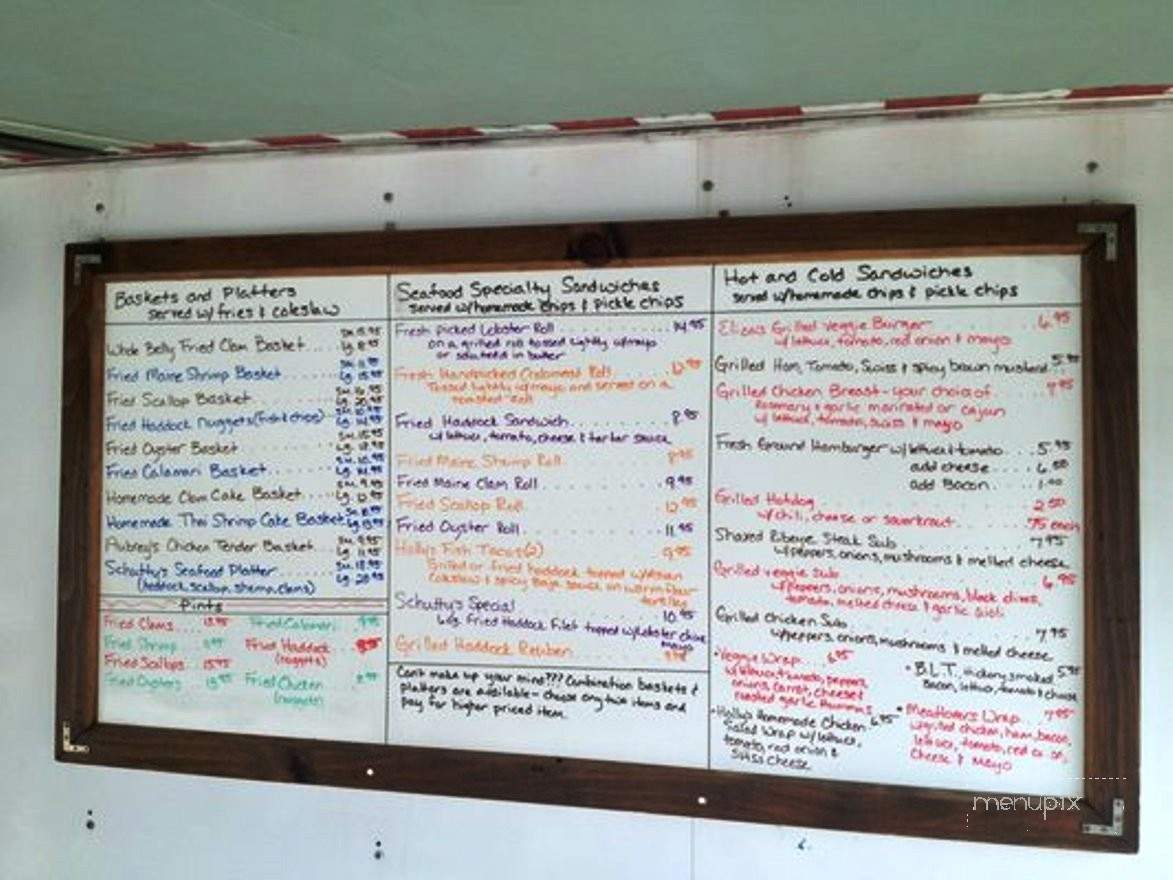 Baskets and Platters
served w/ fries & coleslaw
Whole Belly Fried Clam Basket
Fried Maine Shrimp Basket
Fried Scallop Basket
Fried Haddock Nuggets (fish & chips)
Fried Oyster Basket
Fried Calamari Basket
Homemade Clam Cake Basket
Homemade Thai Shrimp Cake Basket
Aubrey's Chicken Tender Basket
Schutty's Seafood Platter
(haddock, scallop, shrimp, clams)
Pints
Fried Clams Fried Calamari
Fried Shrimp Fried Haddock
(nuggets)
Fried Scallops 15.95
Fried Oysters Fried Chicken
Seafood Specialty Sandwiches
served w/homemade chips & pickle chips
Fresh picked Lobster Roll 14.95
on a grilled roll tossed lightly w/mayo
or sautéed in butter
Fresh Handpicked Crabmeat Roll
Tossed lightly w/mayo and served on a
toasted roll
Fried Haddock Sandwich 8.95
w/lettuce, tomato, cheese & tartar sauce
Fried Maine Shrimp Roll 8.95
Fried Maine Clam Roll 9.95
Fried Scallop Roll 12.95
Fried Oyster Roll 11.95
Holly's Fish Tacos (2) 9.95
Grilled or fried haddock topped w/Asian
Coleslaw & spicy Baja sauce on warm flour
tortillas
Schutty's Special 10.95
Fried Haddock Filet topped w/lobster
mayo
Grilled Haddock Reuben
Can't make up your mind??? Combination baskets &
platters are available - choose any two items and
pay for higher priced item.
Hot and Cold Sandwiches
served w/homemade chips & pickle chips
Eliza's Grilled Veggie Burger 6.95
w/lettuce, tomato, red onion & mayo
Grilled Ham, Tomato, Swiss & spicy brown mustard 5.95
Grilled Chicken Breast - your choice of 7.95
Rosemary & garlic marinated or cajun
w/ lettuce, tomato, swiss & mayo
Fresh Ground Hamburger w/lettuce & tomato 5.95
add cheese
add Bacon 1.00
Grilled Hotdog 2.50
w/chili, cheese or sauerkraut .75 each
Shaved Ribeye Steak Sub 7.95
w/peppers, onions, mushrooms & melted cheese
Grilled veggie sub 6.95
w/peppers, onions, mushrooms, black olives,
tomato, melted cheese & garlic aioli
Grilled Chicken Sub 7.95
w/peppers, onions, mushrooms & melted cheese
•Veggie Wrap 6.95
w/lettuce, tomato, peppers,
onions, carrot, cheese &
roasted garlic hummus
•B.L.T. hickory smoked 5.95
Bacon, lettuce, tomato & cheese
•Holly's Homemade Chicken 6.95
Salad Wrap w/lettuce,
tomato, red onion &
Swiss Cheese
•Meatlovers Wrap 7.95
w/grilled chicken, ham, bacon,
lettuce, tomato, red onion,
Cheese & Mayo
menupix